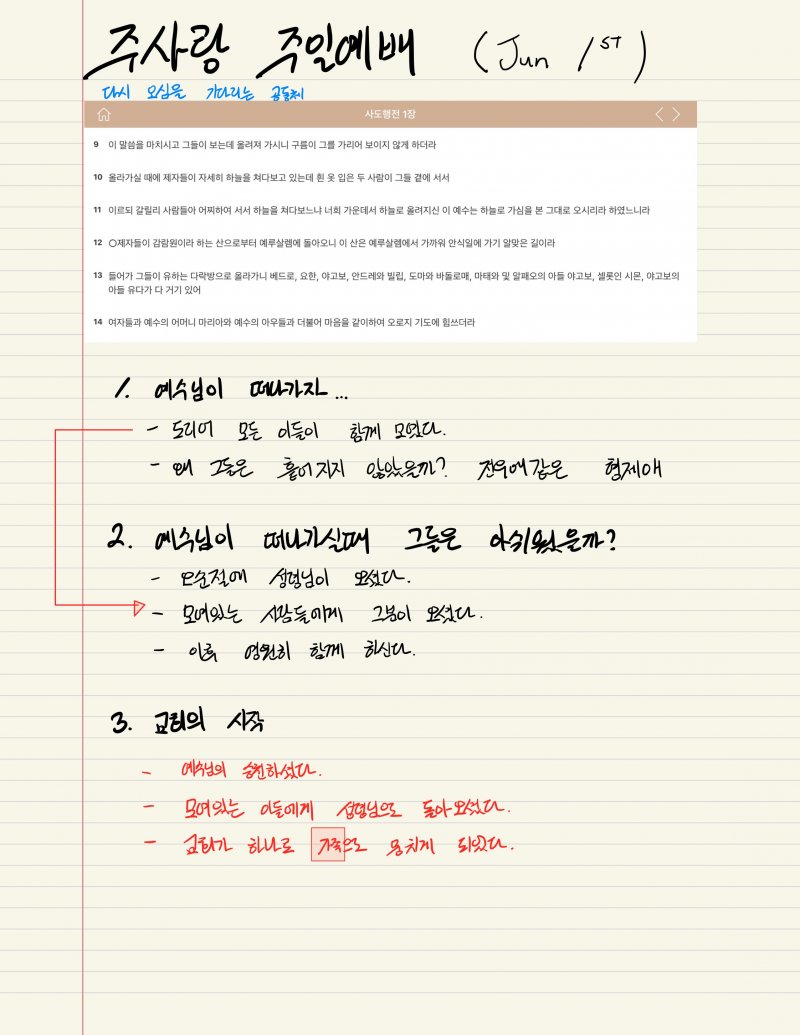 주사랑 주일예배 (Jun 1ST)
다시 오심을 기다리는 공동체
사도행전 1장
9 이 말씀을 마치시고 그들이 보는데 올려져 가시니 구름이 그를 가리어 보이지 않게 하더라
10 올라가실 때에 제자들이 자세히 하늘을 쳐다보고 있는데 흰 옷 입은 두 사람이 그들 곁에 서서
11 이르되 갈릴리 사람들아 어찌하여 서서 하늘을 쳐다보느냐 너희 가운데서 하늘로 올려지신 이 예수는 하늘로 가심을 본 그대로 오시리라 하였느니라
12 ○제자들이 감람원이라 하는 산으로부터 예루살렘에 돌아오니 이 산은 예루살렘에서 가까워 안식일에 가기 알맞은 길이라
13 들어가 그들이 유하는 다락방으로 올라가니 베드로, 요한, 야고보, 안드레와 빌립, 도마와 바돌로매, 마태와 및 알패오의 아들 야고보, 셀롯인 시몬, 야고보의
아들 유다가 다 거기 있어
14 여자들과 예수의 어머니 마리아와 예수의 아우들과 더불어 마음을 같이하여 오로지 기도에 힘쓰더라
1. 예수님이 떠나가자...
- 도리어 모든 이들이 함께 모였다.
- 왜 그들은 흩어지지 않았을까? 전우애같은 형제애
2. 예수님이 떠나가실때 그들은 아쉬웠을까?
- 오순절에 성령님이 오셨다.
- 모여있는 사람들에게 그분이 오셨다.
- 이후 영원히 함께 하신다.
3. 교회의 시작
- 예수님의 승천하셨다.
- 모여있는 이들에게 성령님으로 돌아오셨다.
- 교회가 하나로 가족으로 뭉치게 되었다.